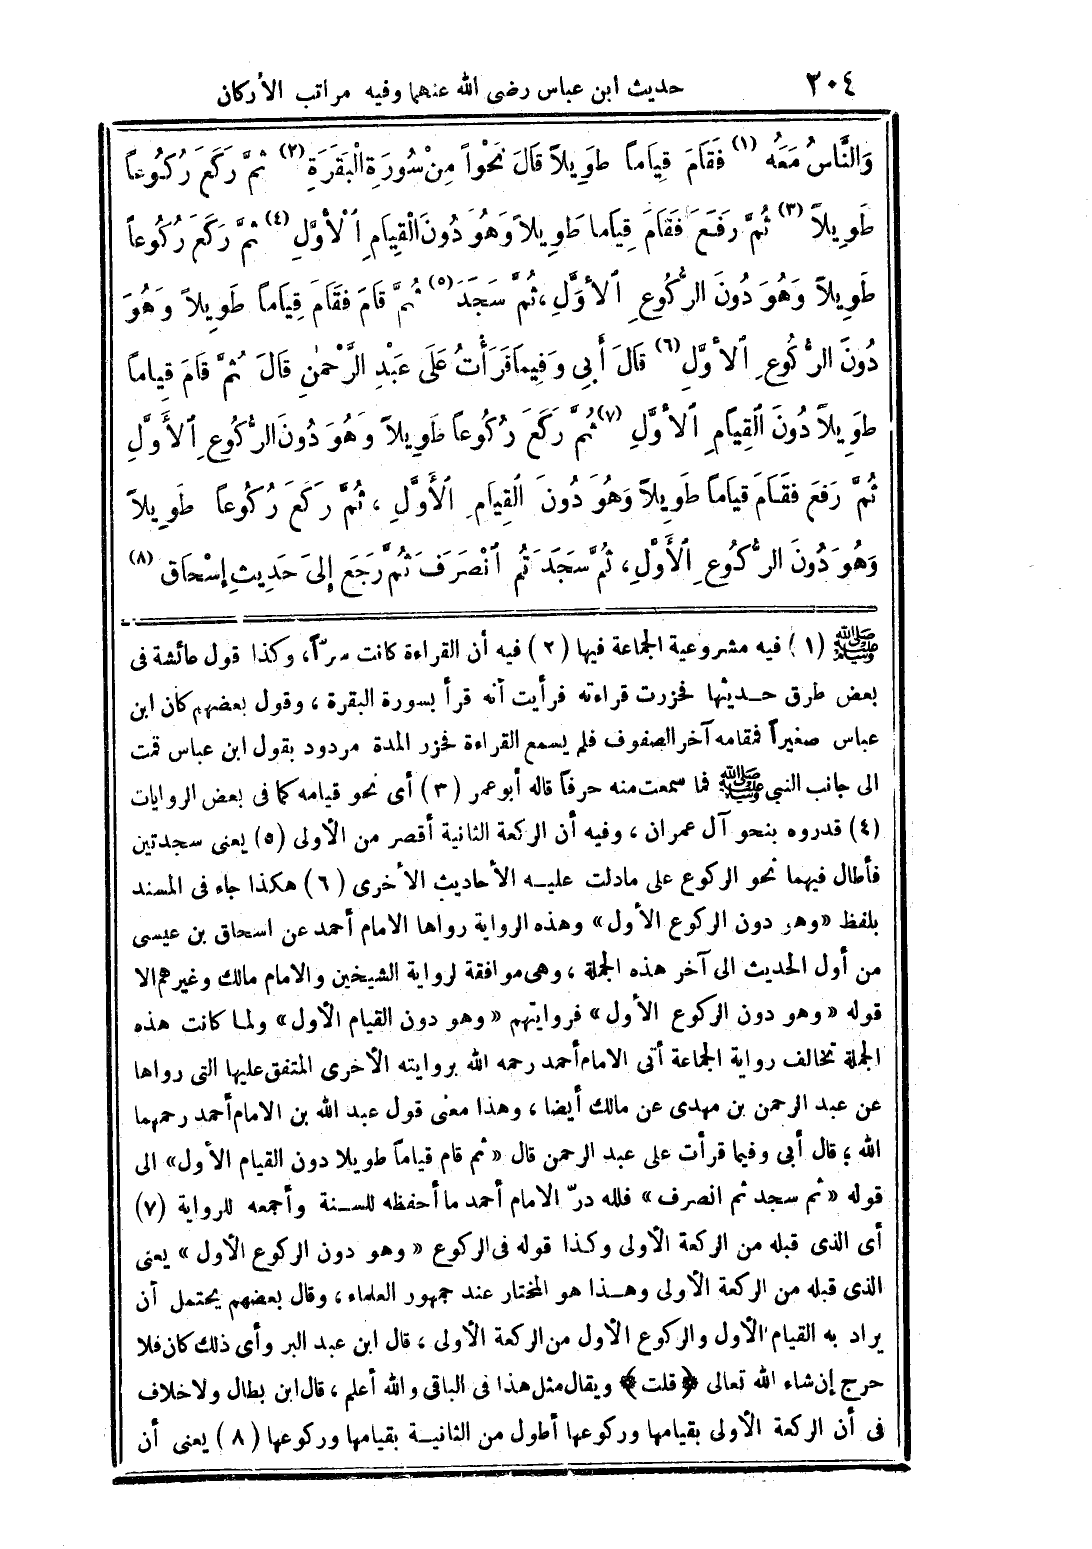 ٢٠٤ حديث ابن عباس رضى الله عنهما وفيه مراتب الأركان
وَالنَّاسُ مَعَهُ (١) فَقَامَ قِيَاماً طَوِيلاً قَالَ نَحْواً مِنْ سُورَةِ الْبَقَرَةِ (٢) ثمَّ رَكَعَ رُكُوعاً
طَوِيلاً (٣) ثُمَّ رَفَعَ فَقَامَ قِيَاما طَوِيلاً وَهُوَ دُونَ الْقِيَامِ الْأَوَّلِ (٤) ثمَّ رَكَعَ رُكُوعاً
طَوِيلاً وَهُوَ دُونَ الرُّكُوعِ الأَوَّلِ، ثمَّ سَجَدَ (٥) ثُمَّ قَامَ فَقَامَ قِيَاماً طَوِيلاً وَهُوَ
دُونَ الرُّكُوعِ الأوَّلِ (٦) قَالَ أَبِى وَفِيمَا قَرَأْتُ عَلَى عَبْدِ الرَّحْمٰنِ قَالَ ثمَّ قَامَ قِيَاماً
طَوِيلاً دُونَ القِيَامِ الأوَّلِ (٧) ثُمَّ رَكَعَ رُكُوعاً طَوِيلاً وَهُوَ دُونَ الرُّكُوعِ الأَوَّلِ
ثُمَّ رَفَعَ فَقَامَ قِيَاماً طَوِيلاً وَهُوَ دُونَ القِيَامِ الأَوَّلِ ، ثُمَّ رَكَعَ رُكُوعاً طَوِيلاً
وَهُوَ دُونَ الرُّكُوعِ الأَوَّلِ، ثمَّ سَجَدَ ثُم انْصَرَفَ ثمَّ رَجَعَ إِلَى حَدِيثِ إِسْحَاقَ (٨)
ﷺ (١) فيه مشروعية الجماعة فيها (٢) فيه أن القراءة كانت سرّاً، وكذا قول عائشة فى
بعض طرق حديثها فحزرت قراءته فرأيت أنه قرأ بسورة البقرة ، وقول بعضهم كان ابن
عباس صغيراً فمقامه آخر الصفوف فلم يسمع القراءة فحزر المدة مردود بقول ابن عباس قمت
الى جانب النبي ﷺ فما سمعت منه حرفاً قاله أبو عمر (٣) أى نحو قيامه كما فى بعض الروايات
(٤) قدروه بنحو آل عمران ، وفيه أن الركعة الثانية أقصر من الأولى (٥) يعنى سجدتين
فأطال فيهما نحو الركوع على مادلت عليه الأحاديث الأخرى (٦) هكذا جاء فى المسند
بلفظ «وهو دون الركوع الأول» وهذه الرواية رواها الامام أحمد عن اسحاق بن عيسى
من أول الحديث الى آخر هذه الجملة ، وهى موافقة لرواية الشيخين والامام مالك وغيرهم الا
قوله «وهو دون الركوع الأول» فروايتهم «وهو دون القيام الأول» ولما كانت هذه
الجملة تخالف رواية الجماعة أتى الامام أحمد رحمه الله بروايته الأخرى المتفق عليها التى رواها
عن عبد الرحمن بن مهدى عن مالك أيضا ، وهذا معنى قول عبد الله بن الامام أحمد رحمهما
الله ؛ قال أبى وفيما قرأت على عبد الرحمن قال «ثم قام قياماً طويلا دون القيام الأول» الى
قوله «ثم سجد ثم انصرف» فلله درّ الامام أحمد ما أحفظه للسنة وأجمعه للرواية (٧)
أى الذى قبله من الركعة الأولى وكذا قوله فى الركوع «وهو دون الركوع الأول» يعنى
الذى قبله من الركعة الأولى وهذا هو المختار عند جمهور العلماء ، وقال بعضهم يحتمل أن
يراد به القيام الأول والركوع الأول من الركعة الأولى ، قال ابن عبد البر وأى ذلك كان فلا
حرج إن شاء الله تعالى ﴿قلت﴾ ويقال مثل هذا فى الباقى والله أعلم ، قال ابن بطال ولا خلاف
فى أن الركعة الأولى بقيامها وركوعها أطول من الثانية بقيامها وركوعها (٨) يعنى أن